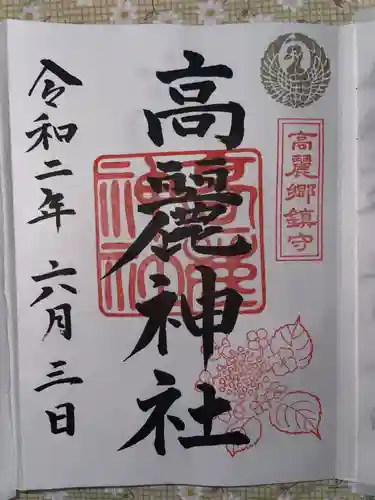 高麗郷鎮守
高麗神社
高麗神社
令和二年 六月三日